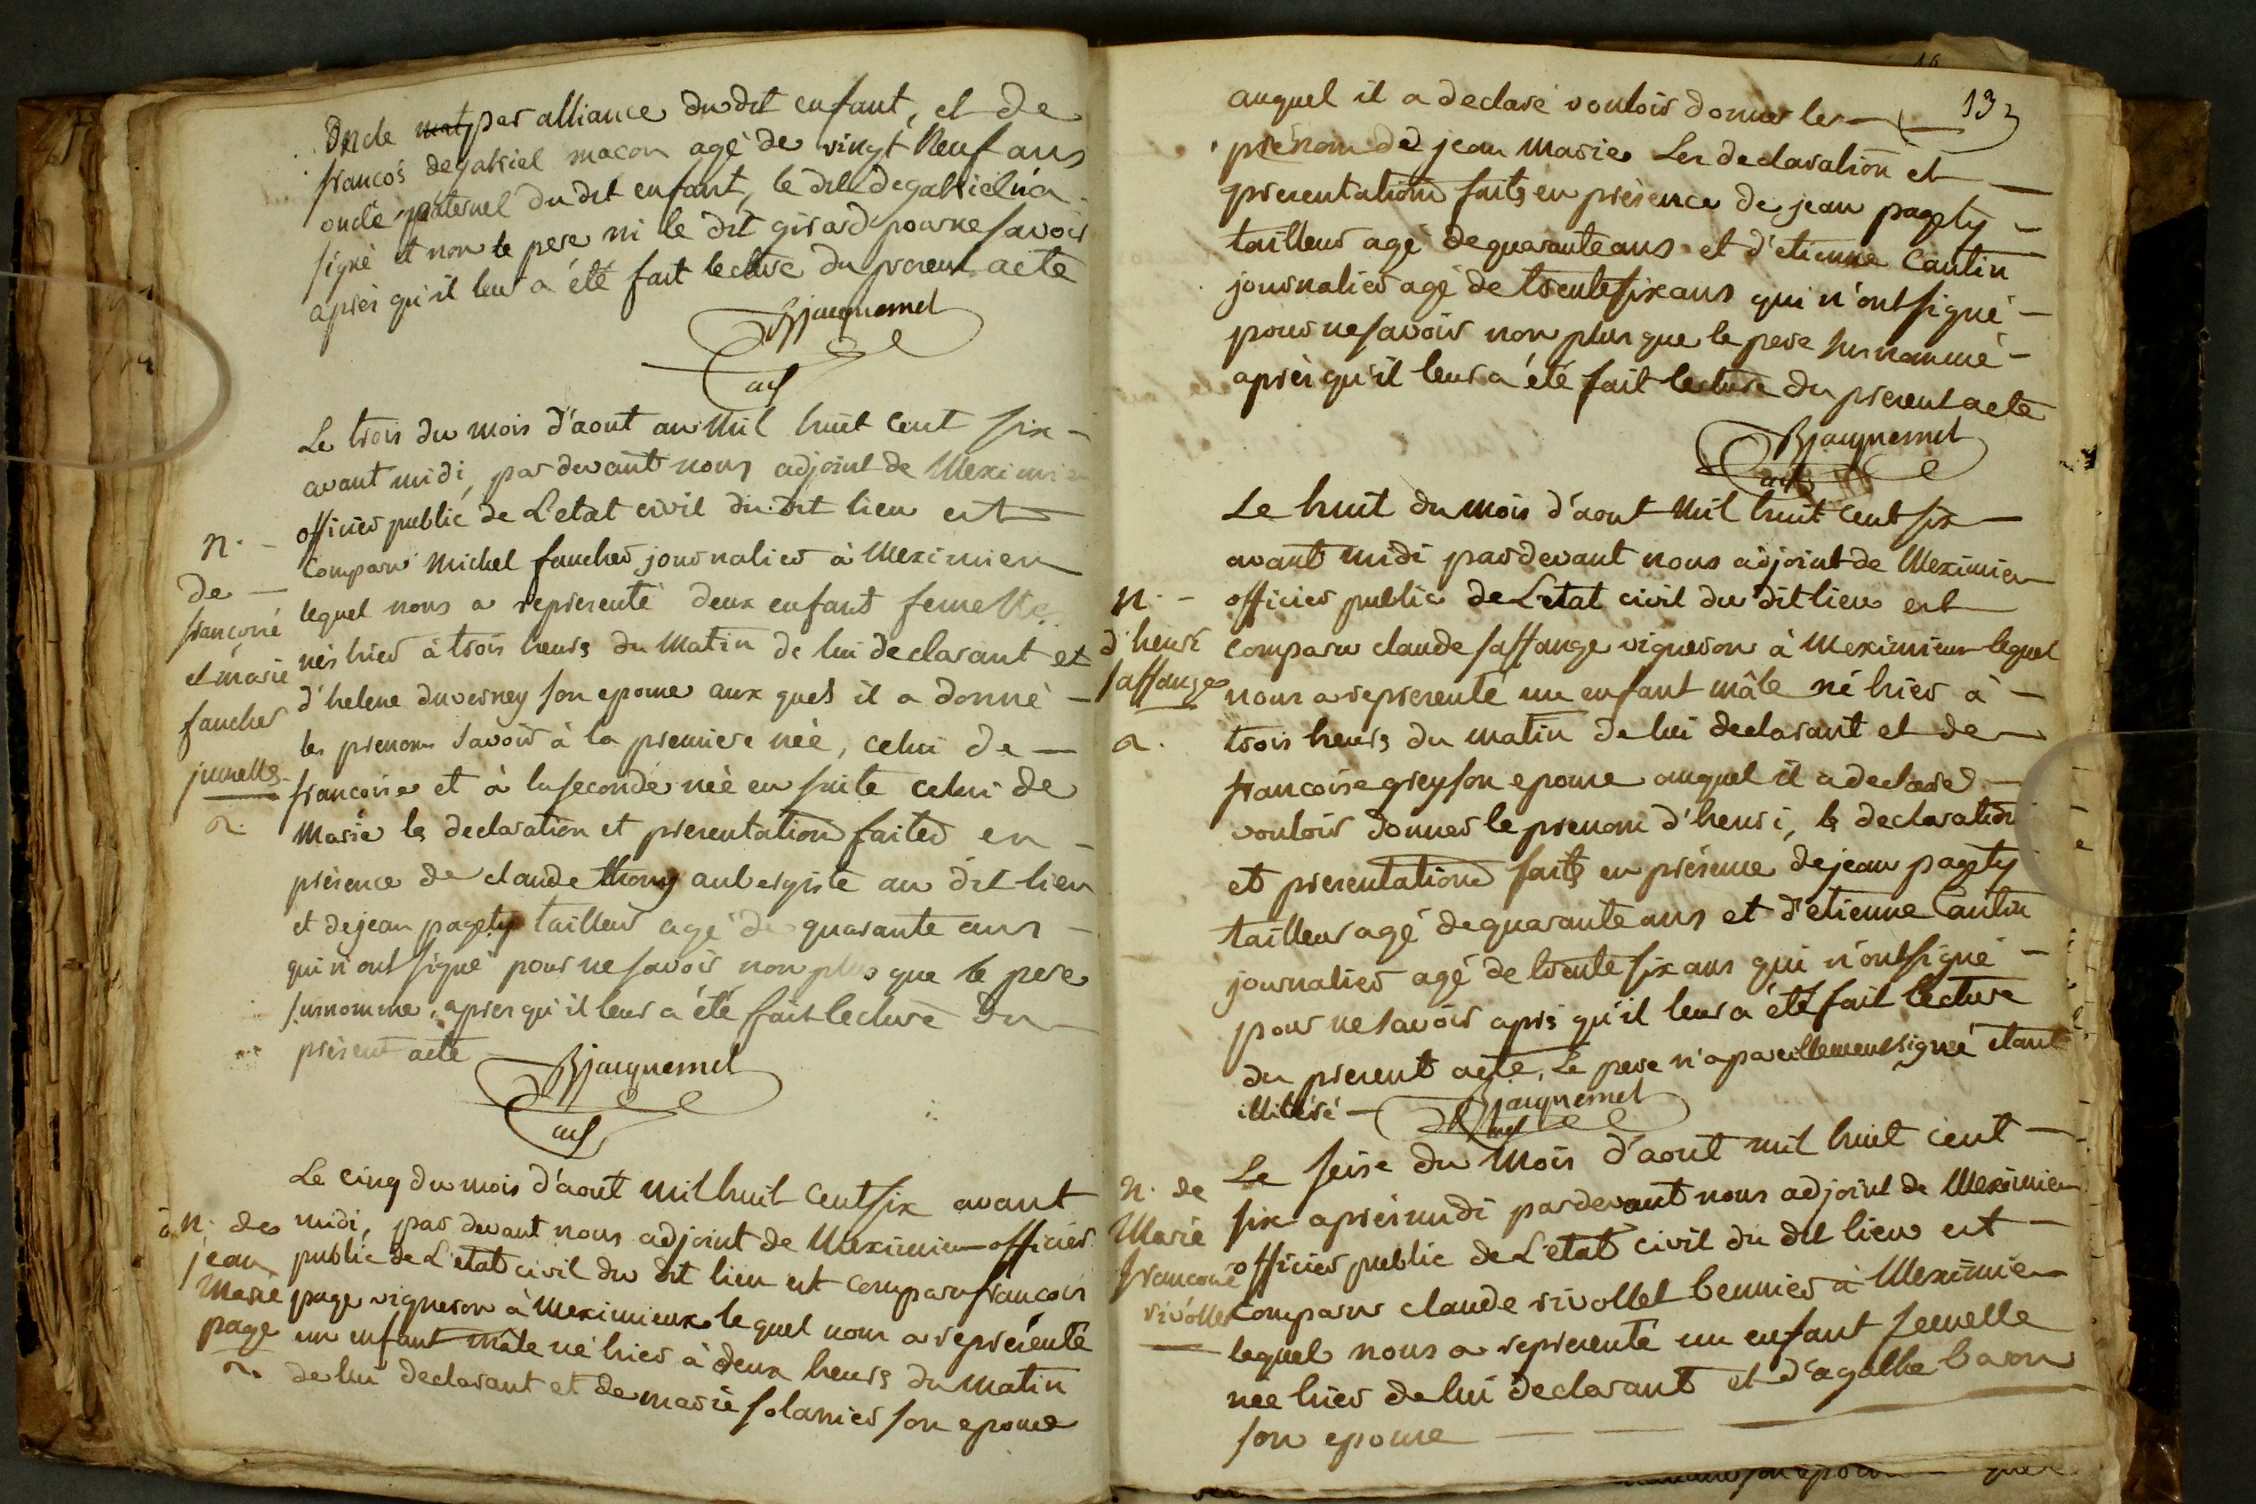 Oncle par alliance du dit enfant, et de
françois degabriel macon agé de vingt Neuf ans
oncle paternel du dit enfant, le dit degabriel n'a
signé et non le pere ni le dit girard pour ne savoir
aprés qu'il leur a été fait lecture du present acte
Bjacquemet
adj
Le trois du mois d'aout an Mil huit Cent six
avant midi, par devant nous adjoint de Meximieu
officier public de L'etat civil du dit lieu est
comparu Michel faucher journalier à Meximieu
lequel nous a representé deux enfant femelles
nés hier à trois heurs du Matin de lui declarant et
d'helene duverney son epouse aux quels il a donné
les prenoms savoir à la premiere née, celui de
francoise et à la seconde née en suite celui de
Marie les declaration et presentation faites en
présence de claude thony aubergiste au dit lieu
et de jean pagety tailleur agé de quarante ans
qui n'ont signé pour ne savoir non plus que le pere
surnommé, apres qu'il leur a été fait lecture du
présent acte
Bjacquemet
adj
n.
de
françoise
et marie
faucher
jumelles
Le cinq du mois d'aout mil huit Cent six avant
midi, par devant nous adjoint de Meximieu officier
public de L'etat civil du dit lieu est comparu francois
page vigneron à Meximieux lequel nous a représenté
un enfant mâle né hier à deux heurs du Matin
de lui declarant et de marie solanier son epouse
n. de
jean
Marie
page
13
auquel il a declaré vouloir donner les
prénom de jean Marie Les declaration et
presentation faits en présence de jean pagety
tailleur agé de quarante ans et d'etienne Cantin
journalier agé de trente six ans qui n'ont signé
pour ne savoir non plus que le pere susnommé
aprés qu'il leur a été fait lecture du present acte
Bjacquemet
adj
Le huit du mois d'aout Mil huit Cent six
avant midi par devant nous adjoint de Meximieu
officier public de L'etat civil du dit lieu est
comparu claude saffange vigneron à Meximieux lequel
nous a representé un enfant mâle né hier à
trois heurs du matin de lui declarant et de
francoise grey son epouse auquel il a declaré
vouloir donner le prenom d'henri, les declaration
et presentation faits en présence de jean pagety
tailleur agé de quarante ans et d'etienne Cantin
journalier agé de trente six ans qui n'ont signé
pour ne savoir aprés qu'il leur a été fait lecture
du present acte, Le pere n'a pareillement signé étant
illitéré
Bjacquemet
adj
n.
d'henri
saffange
Le seise du Mois d'aout mil huit cent
six aprés midi par devant nous adjoint de Meximieu
officier public de L'etat civil du dit lieu est
comparu claude rivollet bennier à Meximieu
lequel nous a representé un enfant femelle
née hier de lui declarant et d'agathe baron
son epouse
n. de
Marie
francoise
rivollet